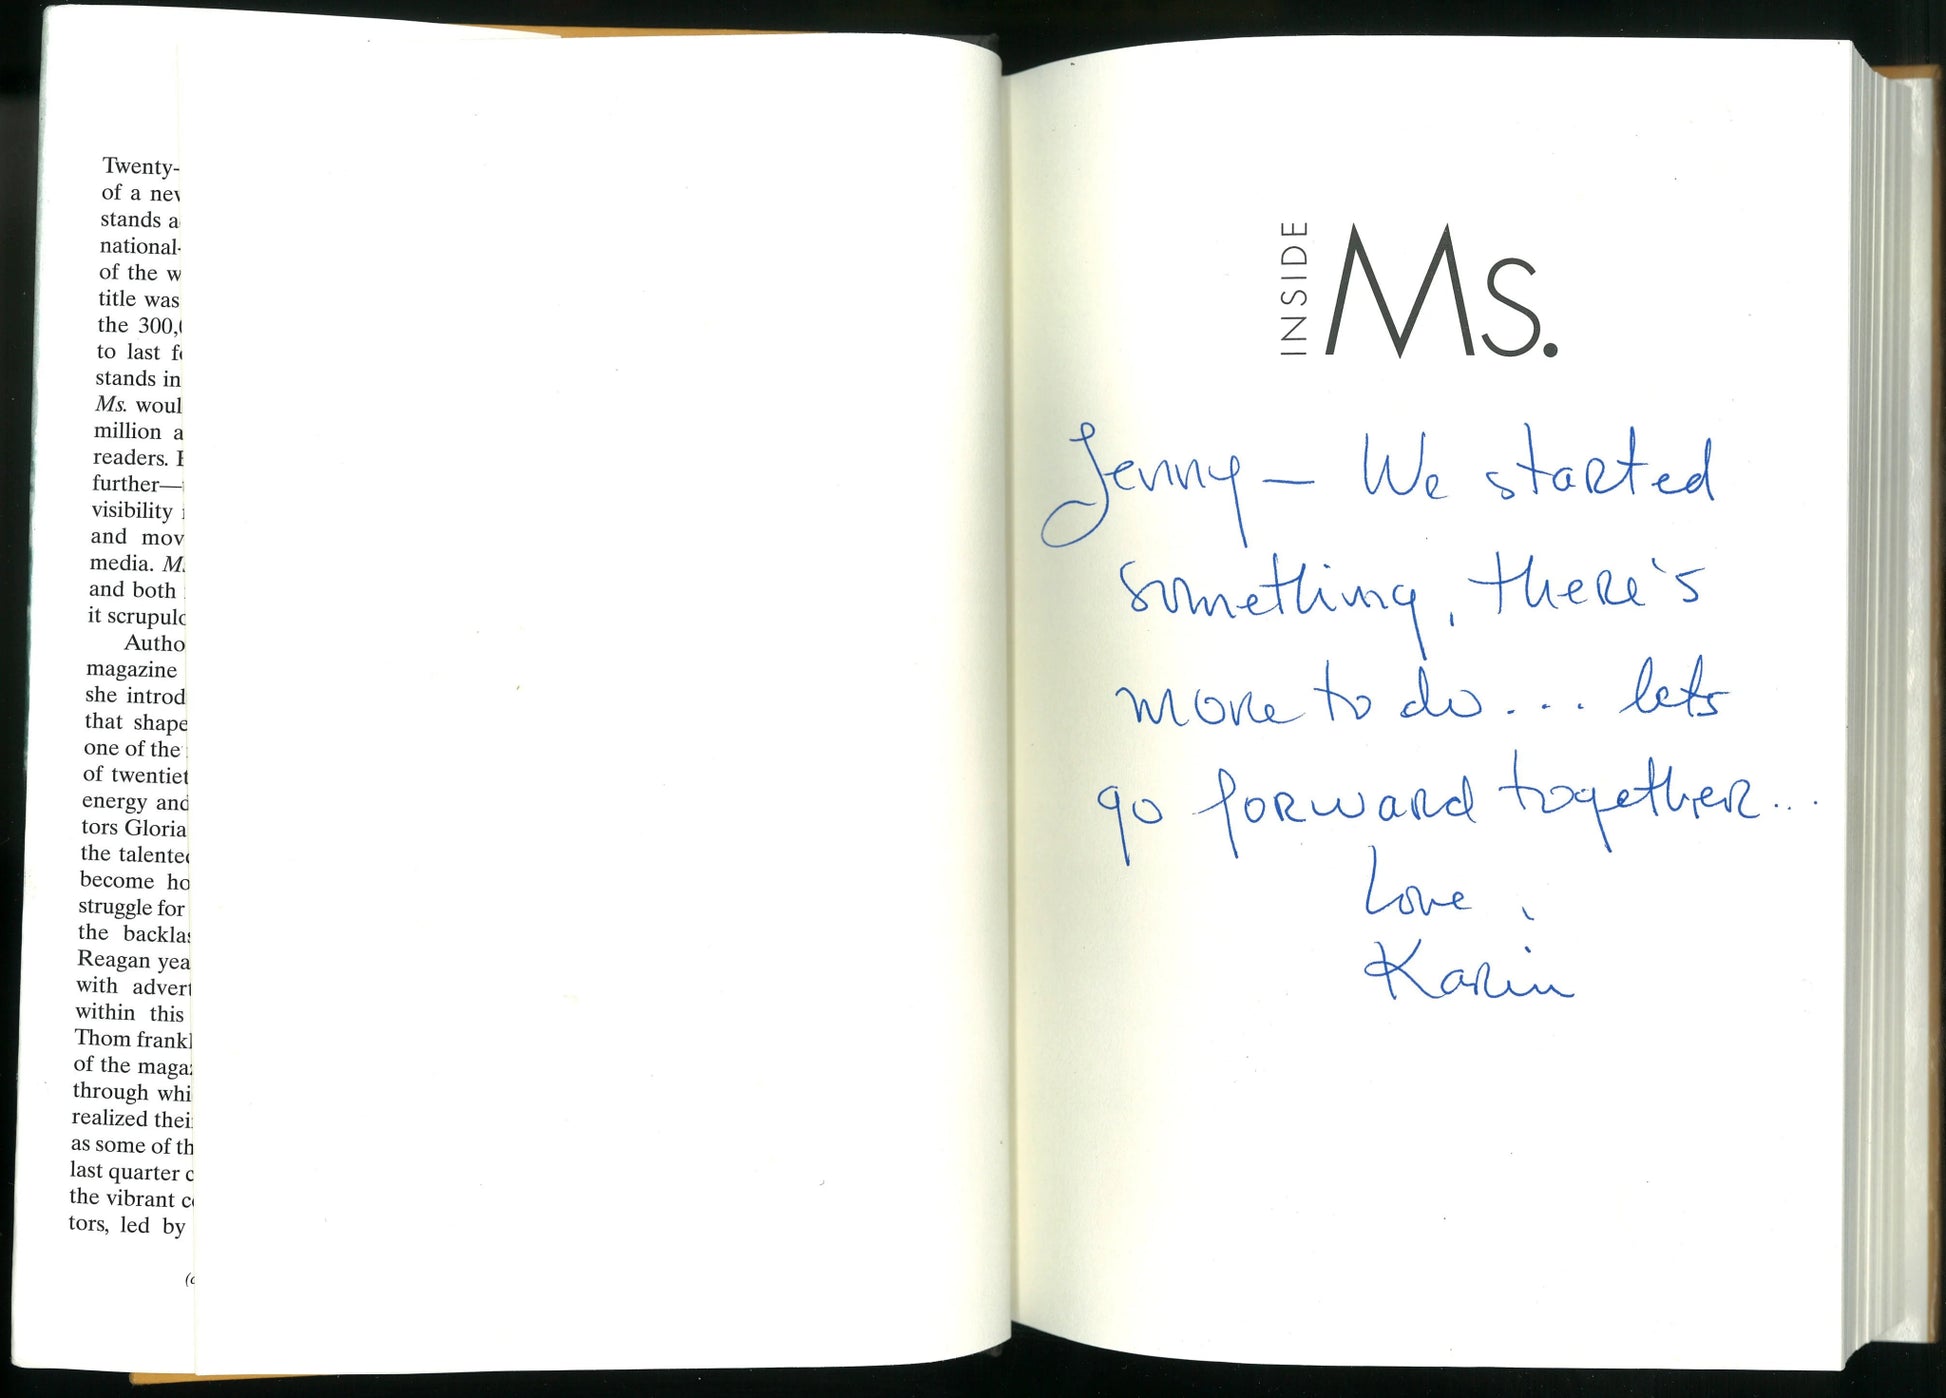 Twenty-
of a nev
stands a
national-
of the w
title was
the 300,
to last f
stands in
Ms. woul
million a
readers.
further—
visibility
and mov
media. M
and both
it scrupulo
Autho
magazine
she introd
that shape
one of the
of twentiet
energy and
tors Gloria
the talented
become ho
struggle for
the backlas
Reagan yea
with advert
within this
Thom frankl
of the maga
through whi
realized thei
as some of th
last quarter c
the vibrant c
tors, led by
(c
INSIDE Ms.
Jenny — We started
something, there's
more to do... lets
go forward together...
Love,
Karin